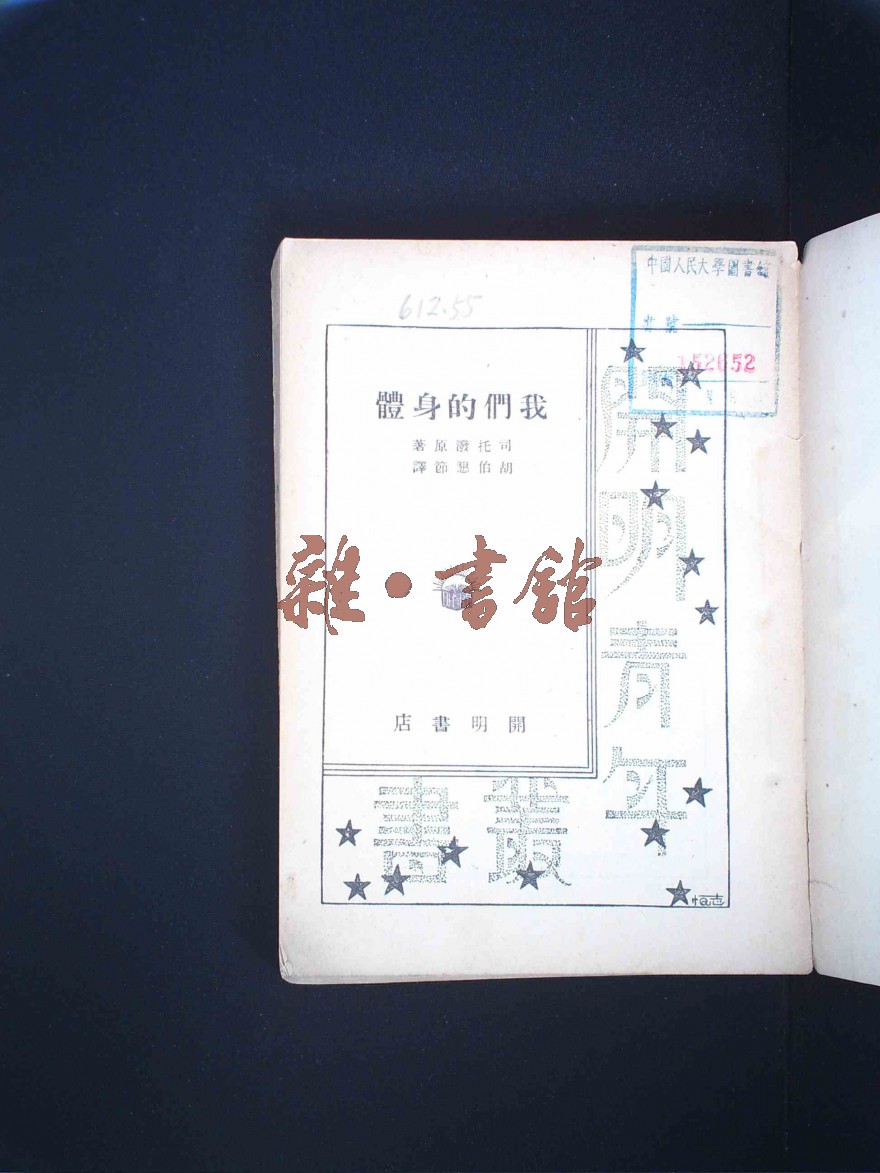 612.55
中國人民大學圖書館
152652
我們的身體
司托潑原著
胡伯懇節譯
開明書店
開明青年
叢書
雜·書館